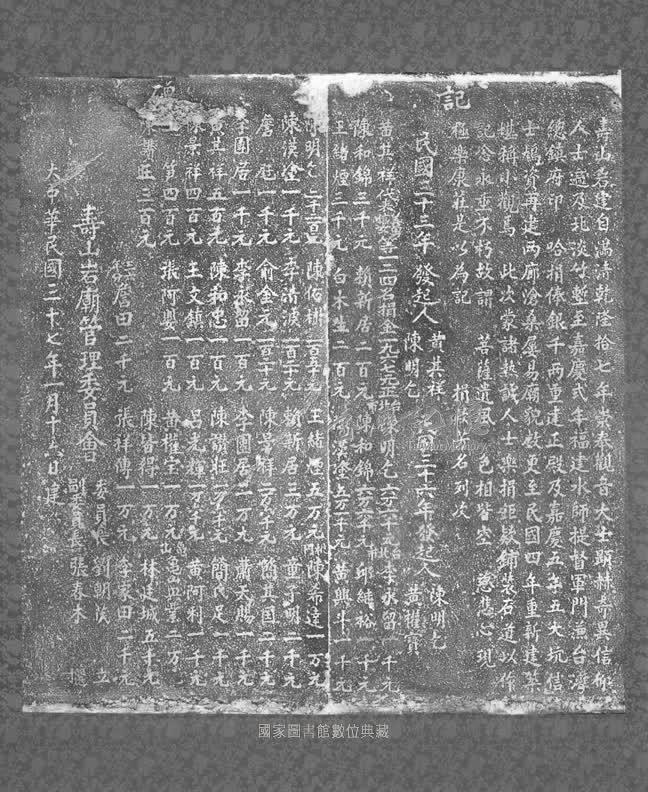 記
碑
壽山岩建自滿清乾隆拾七年崇奉觀音大士顯赫希異信仰
人士遍及北淡竹塹至嘉慶弍年福建水師提督軍門兼台灣
總鎮府印 哈捐俸銀千兩重建正殿及嘉慶五年五大坑信
士捐資再建兩廊滄桑屢易廟貌數更至民國四年重新建築
堪稱小觀焉 此次蒙諸熱誠人士樂捐距款鋪裝石道以作
記念永垂不朽故謂 菩薩遺風 色相皆空 慈悲心現
極樂康莊是以為記 捐款芳名列次
民國二十三年發起人 黃其祥 陳明乞 民國三十六年發起人 陳明乞 黃權寶
黃其祥 一二四名捐金 陳明乞 李永留一千元
陳和錦三千元 賴新居二百元 陳和錦 邱維裕一千元
王緒煙三千元 白木生二百元 漢塗五万千元 黃興斗一千元
陳明乞 陳佰耕一百二十元 王緒煙五万元 陳希達一万元
陳漢塗一千元 李清漢一百二十元 賴新居三万元 童子明二千元
詹 一千元 俞金元一百二十元 陳景祥 簡其國二千元
李團居一千元 李永留一百元 李團居二万元 蕭天賜一千元
黃其祥五百元 陳和忠一百元 陳讚旺 簡 足一千元
陳景祥四百元 王文鎮一百元 呂光輝一万千元 黃阿利一千元
 四百元 張阿嬰一百元 黃權宝一万元 龜山 二万元
陳讚旺三百元 陳皆得一万元 林 城五千元
詹田二千元 張祥傳一万元 李家田二千元
壽山岩廟管理委員會 委員長 劉朝 副委員長 張春木 立
大中華民國三十七年一月十六日建
國家圖書館數位典藏